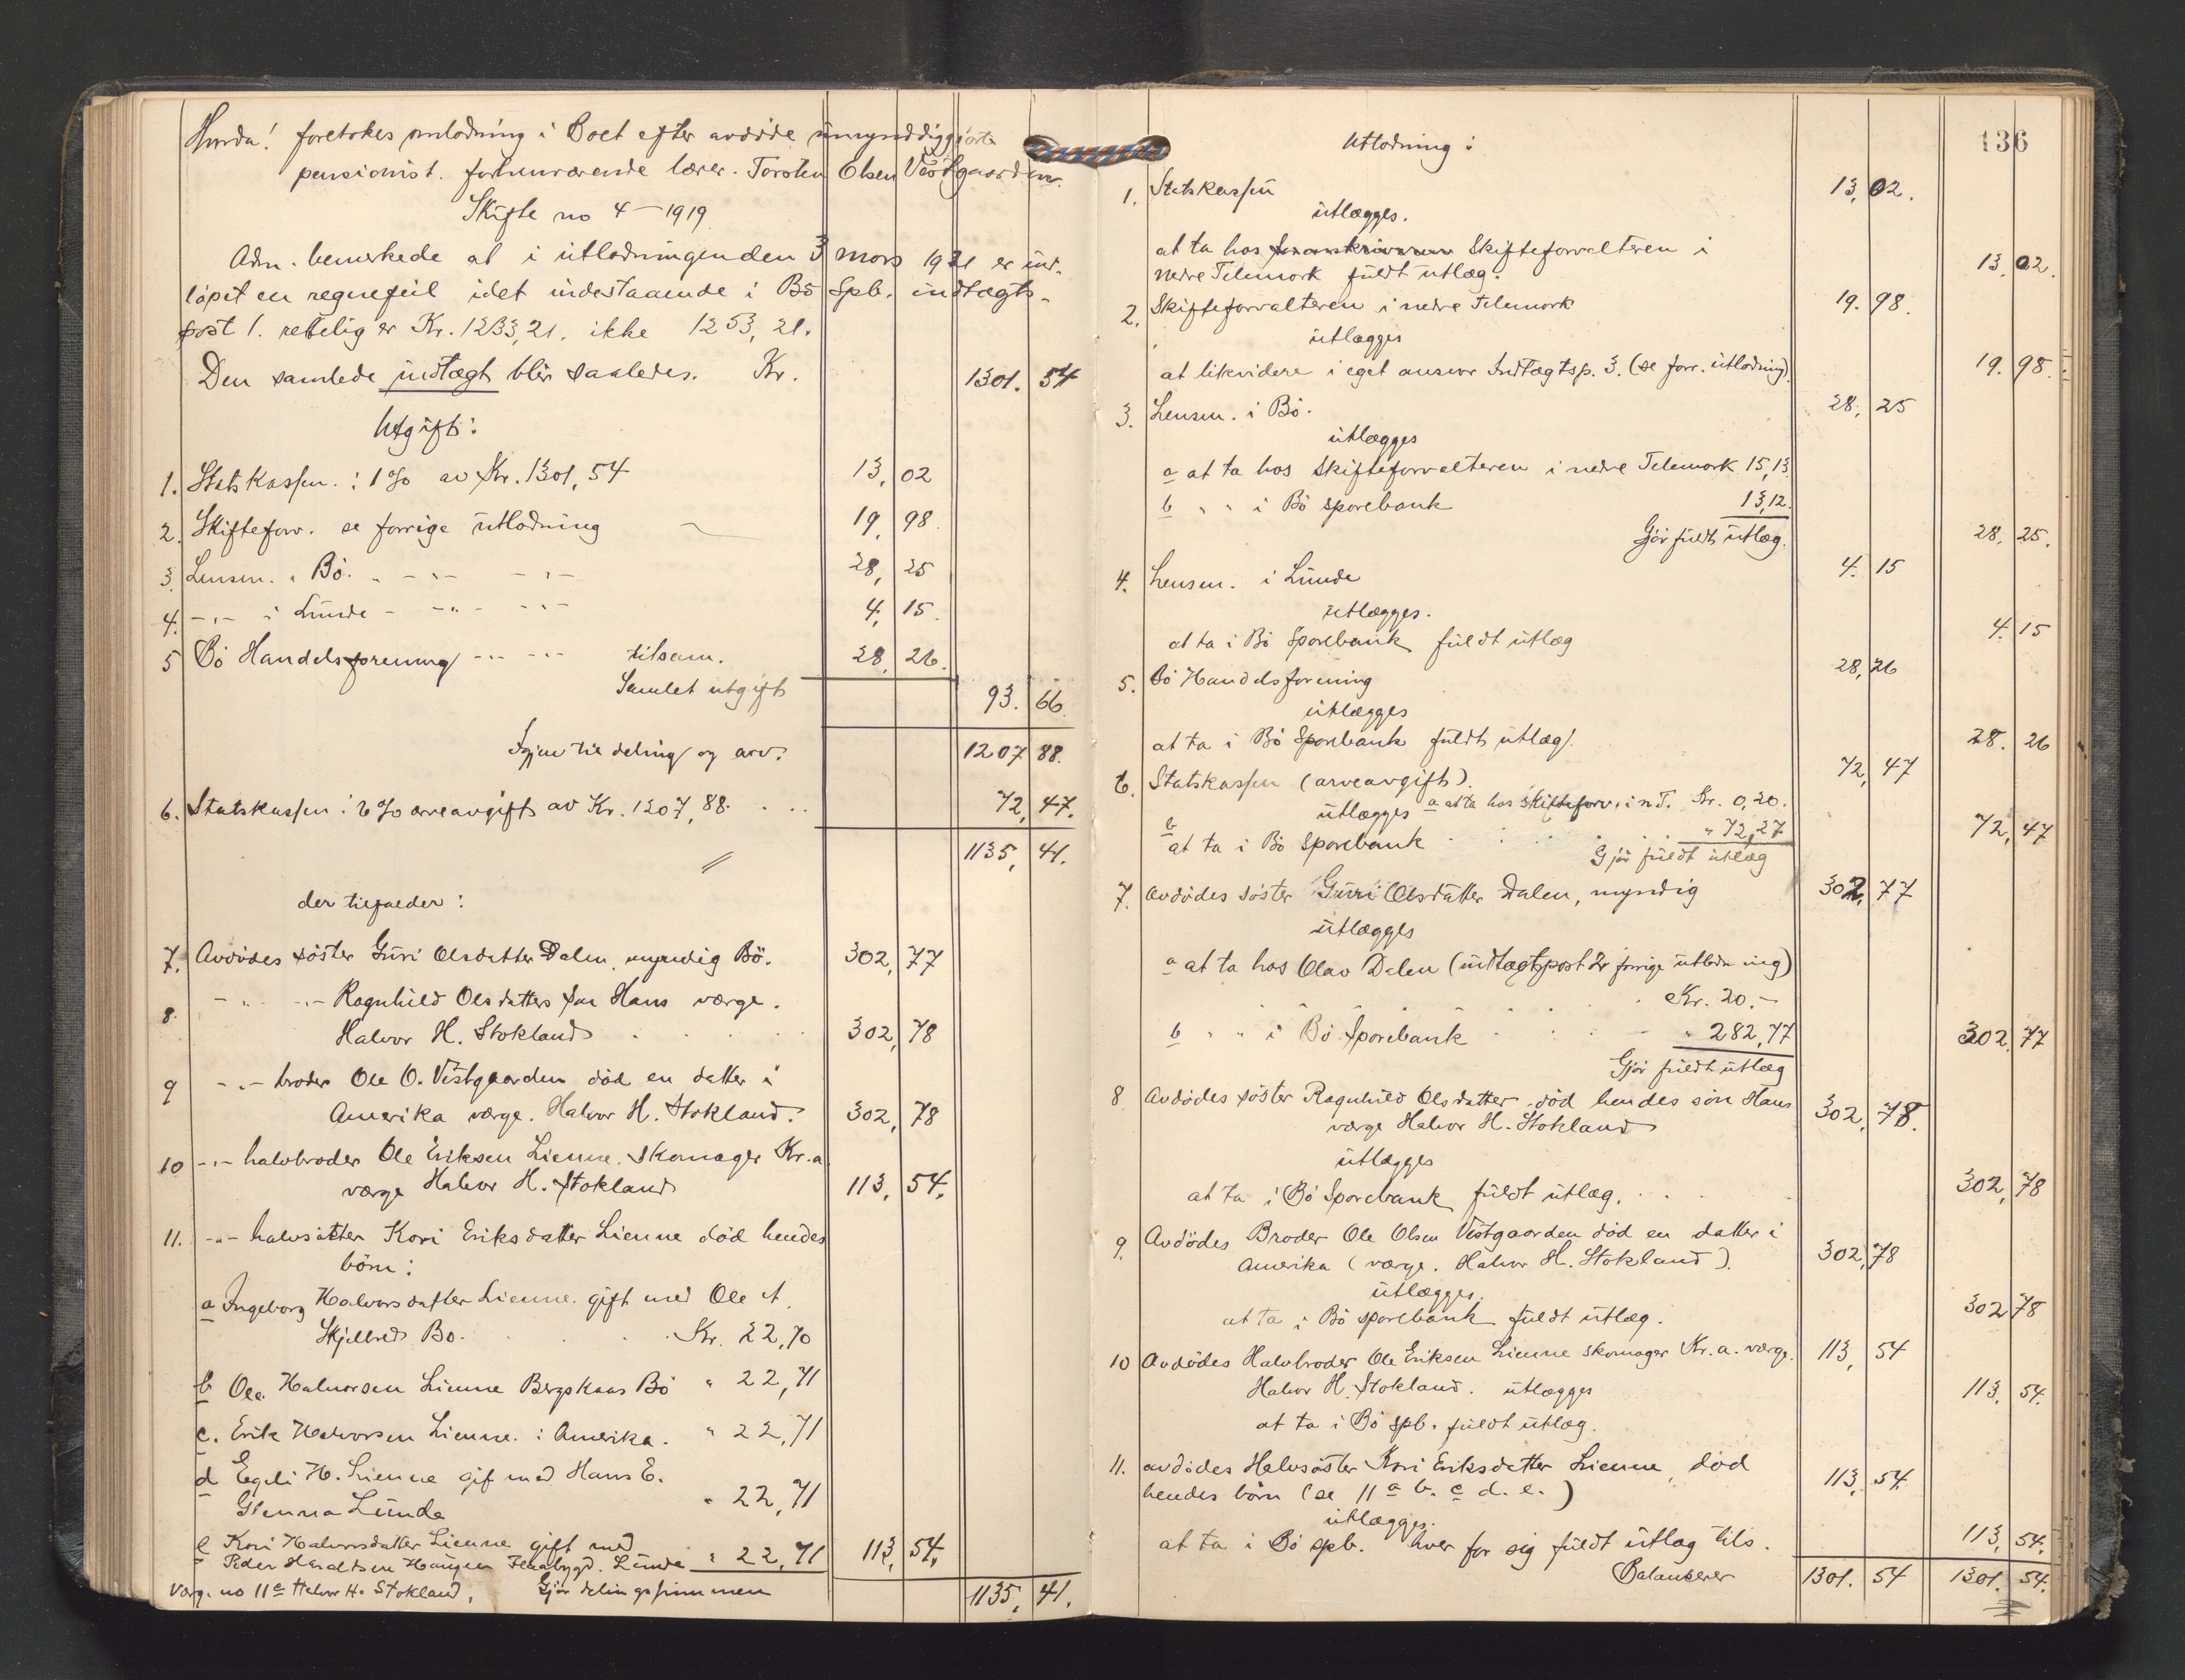 foretokes omlodning i Boet efter avdöde umynddiggjorte
pensionist. forhenværende lærer. Torsten Olsen Vestgaarden.
Skifte no 4 - 1919
Adm. bemerkede at i utlodningen den 3 mars 1921 er ind-
löpet en regnefeil idet indestaaende i Bö Spb. indtægts-
post 1. rettelig er Kr. 1233,21. ikke 1253,21.
Den samlede indtægt blir saaledes. Kr. 1301. 54
Utgift:
1. Statskassen.: 1 % av Kr. 1301,54 13, 02
2. Skifteforv. se forrige utlodning 19, 98
3 Lensm. i Bö. " - " - - " - 28, 25
4. - " - i Lunde - - " - - " - 4, 15.
5 Bö Handelsforening - " - - " - tilsam. 28, 26.
Samlet utgift 93. 66.
Igjen til deling og arv. 1207 88.
6. Statskassen: 6 % arveavgift av Kr. 1207,88. 72, 47.
1135, 41.
der tilfalder:
7. Avdödes söster Guri Olsdatter Dalen, myndig Bö. 302, 77
8. - " - - " - Ragnhild Olsdatters sön Hans værge.
Halvor H. Stokland 302, 78
9 - " - broder Ole O. Vestgaarden död en datter i
Amerika værge. Halvor H. Stokland. 302, 78
10 - " - halvbroder Ole Eriksen Lienne. skomager Kr.a
værge Halvor H. Stokland 113, 54.
11. - " - halvsöster Kari Eriksdatter Lienne död hendes
börn:
a Ingeborg Halvorsdatter Lienne. gift med Ole A.
Skjelbred Bö. Kr. 22,70
b Ole Halvorsen Lienne Bergskaas Bö " 22,71
c. Erik Halvorsen Lienne. i Amerika. " 22,71
d Egeli H. Lienne gif med Hans E.
Glenna Lunde " 22,71
e Kari Halvorsdatter Lienne gift med
Peder Haraldsen Haugen Flaabygd. Lunde " 22,71 113, 54.
Værg. no 11c Halvor H. Stokland. Gjör delingssummen 1135, 41.
136
Utlodning:
1. Statskassen 13, 02.
utlægges.
at ta hos Skifteforvalteren i
nedre Telemark fuldt utlæg. 13, 02.
2. Skifteforvalteren i nedre Telemark 19. 98.
utlægges
at likvidere i eget ansvar Indtægtsp. 3. (se forr. utlodning) 19. 98.
3. Lensm. i Bö. 28, 25
utlægges
a at ta hos Skifteforvalteren i nedre Telemark 15,13
b " " i Bö sparebank 13,12.
Gjör fuldt utlæg. 28, 25.
4. Lensm. i Lunde 4. 15
utlægges.
at ta i Bö Sparebank fuldt utlæg 4. 15
5. Bö Handelsforening 28, 26
utlægges
at ta i Bö Sparebank fuldt utlæg. 28. 26
6. Statskassen (arveavgift). 72, 47
utlægges a at ta hos skifteforv. i n T. Kr. 0,20.
b at ta i Bö Sparebank " 72,27
Gjör fuldt utlæg 72, 47
7. Avdödes söster Guri Olsdatter Dalen, myndig 302, 77
utlægges
a at ta hos Olav Dalen (indtægtspost 2 forrige utlodning)
Kr. 20. -
b " " i Bö Sparebank " 282,77 302, 77
Gjör fuldt utlæg
8 Avdödes söster Ragnhild Olsdatter död hendes sön Hans 302, 78.
værge Halvor H. Stokland
utlægges
at ta i Bö Sparebank fuldt utlæg. 302, 78
9. Avdödes Broder Ole Olsen Vestgaarden död en datter i
Amerika (værge. Halvor H. Stokland). 302, 78
utlægges.
at ta i Bö sparebank fuldt utlæg. 302 78
10 Avdödes Halvbroder Ole Eriksen Lienne skomager Kr.a. værge. 113, 54
Halvor H. Stokland. utlægges 113, 54.
at ta i Bö spb. fuldt utlæg.
11. avdödes Halvsöster Kari Eriksdatter Lienne, död
hendes börn (se 11 a b. c d. e.) 113, 54.
utlægges.
at ta i Bö spb. hver for sig fuldt utlæg tils. 113, 54.
Balanserer 1301. 54 1301. 54.